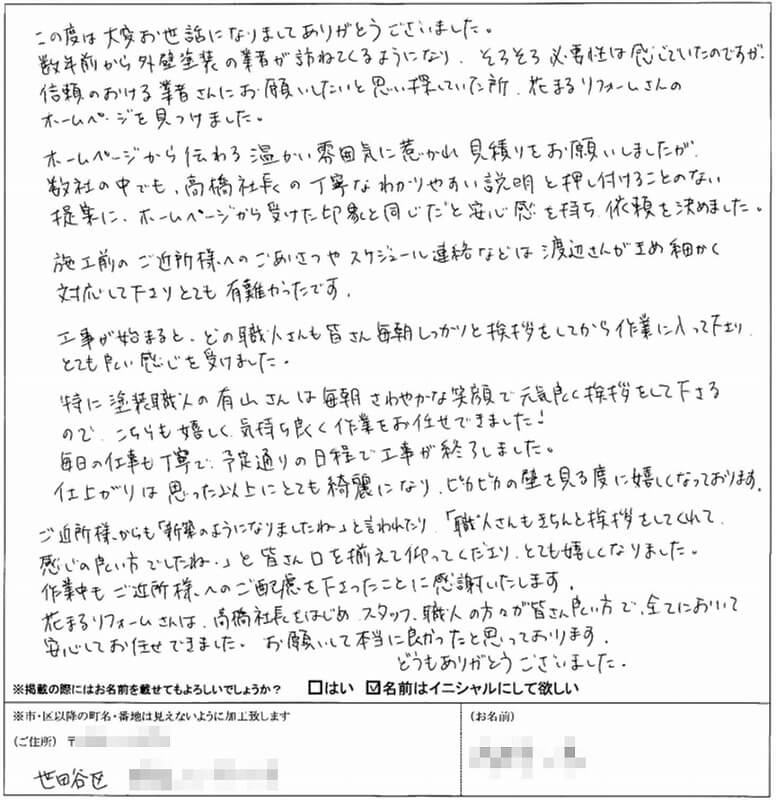 この度は大変お世話になりましてありがとうございました。
数年前から外壁塗装の業者が訪ねてくるようになり、そろそろ必要性は感じていたのですが、
信頼のおける業者さんにお願いしたいと思い探していた所、花まるリフォームさんの
ホームページを見つけました。
ホームページから伝わる温かい雰囲気に惹かれ見積りをお願いしましたが、
数社の中でも、高橋社長の丁寧なわかりやすい説明と押し付けることのない
提案に、ホームページから受けた印象と同じだと安心感を持ち、依頼を決めました。
施工前のご近所様へのごあいさつやスケジュール連絡などは渡辺さんがきめ細かく
対応して下さりとても有難かったです。
工事が始まると、どの職人さんも皆さん毎朝しっかりと挨拶をしてから作業に入って下さり、
とても良い感じを受けました。
特に塗装職人の有山さんは毎朝さわやかな笑顔で元気良く挨拶をして下さる
ので、こちらも嬉しく、気持ち良く作業をお任せできました！
毎日の仕事も丁寧で、予定通りの日程で工事が終了しました。
仕上がりは思った以上にとても綺麗になり、ピカピカの壁を見る度に嬉しくなっております。
ご近所様からも「新築のようになりましたね」と言われたり、「職人さんもきちんと挨拶をしてくれて、
感じの良い方でしたね。」と皆さん口を揃えて仰ってくださり、とても嬉しくなりました。
作業中もご近所様へのご配慮を下さったことに感謝いたします。
花まるリフォームさんは、高橋社長をはじめ、スタッフ、職人の方々が皆さん良い方で、全てにおいて
安心してお任せできました。お願いして本当に良かったと思っております。
どうもありがとうございました。
※掲載の際にはお名前を載せてもよろしいでしょうか？ □はい ☑名前はイニシャルにして欲しい
※市・区以降の町名・番地は見えないように加工致します
(ご住所) 〒
世田谷区
(お名前)